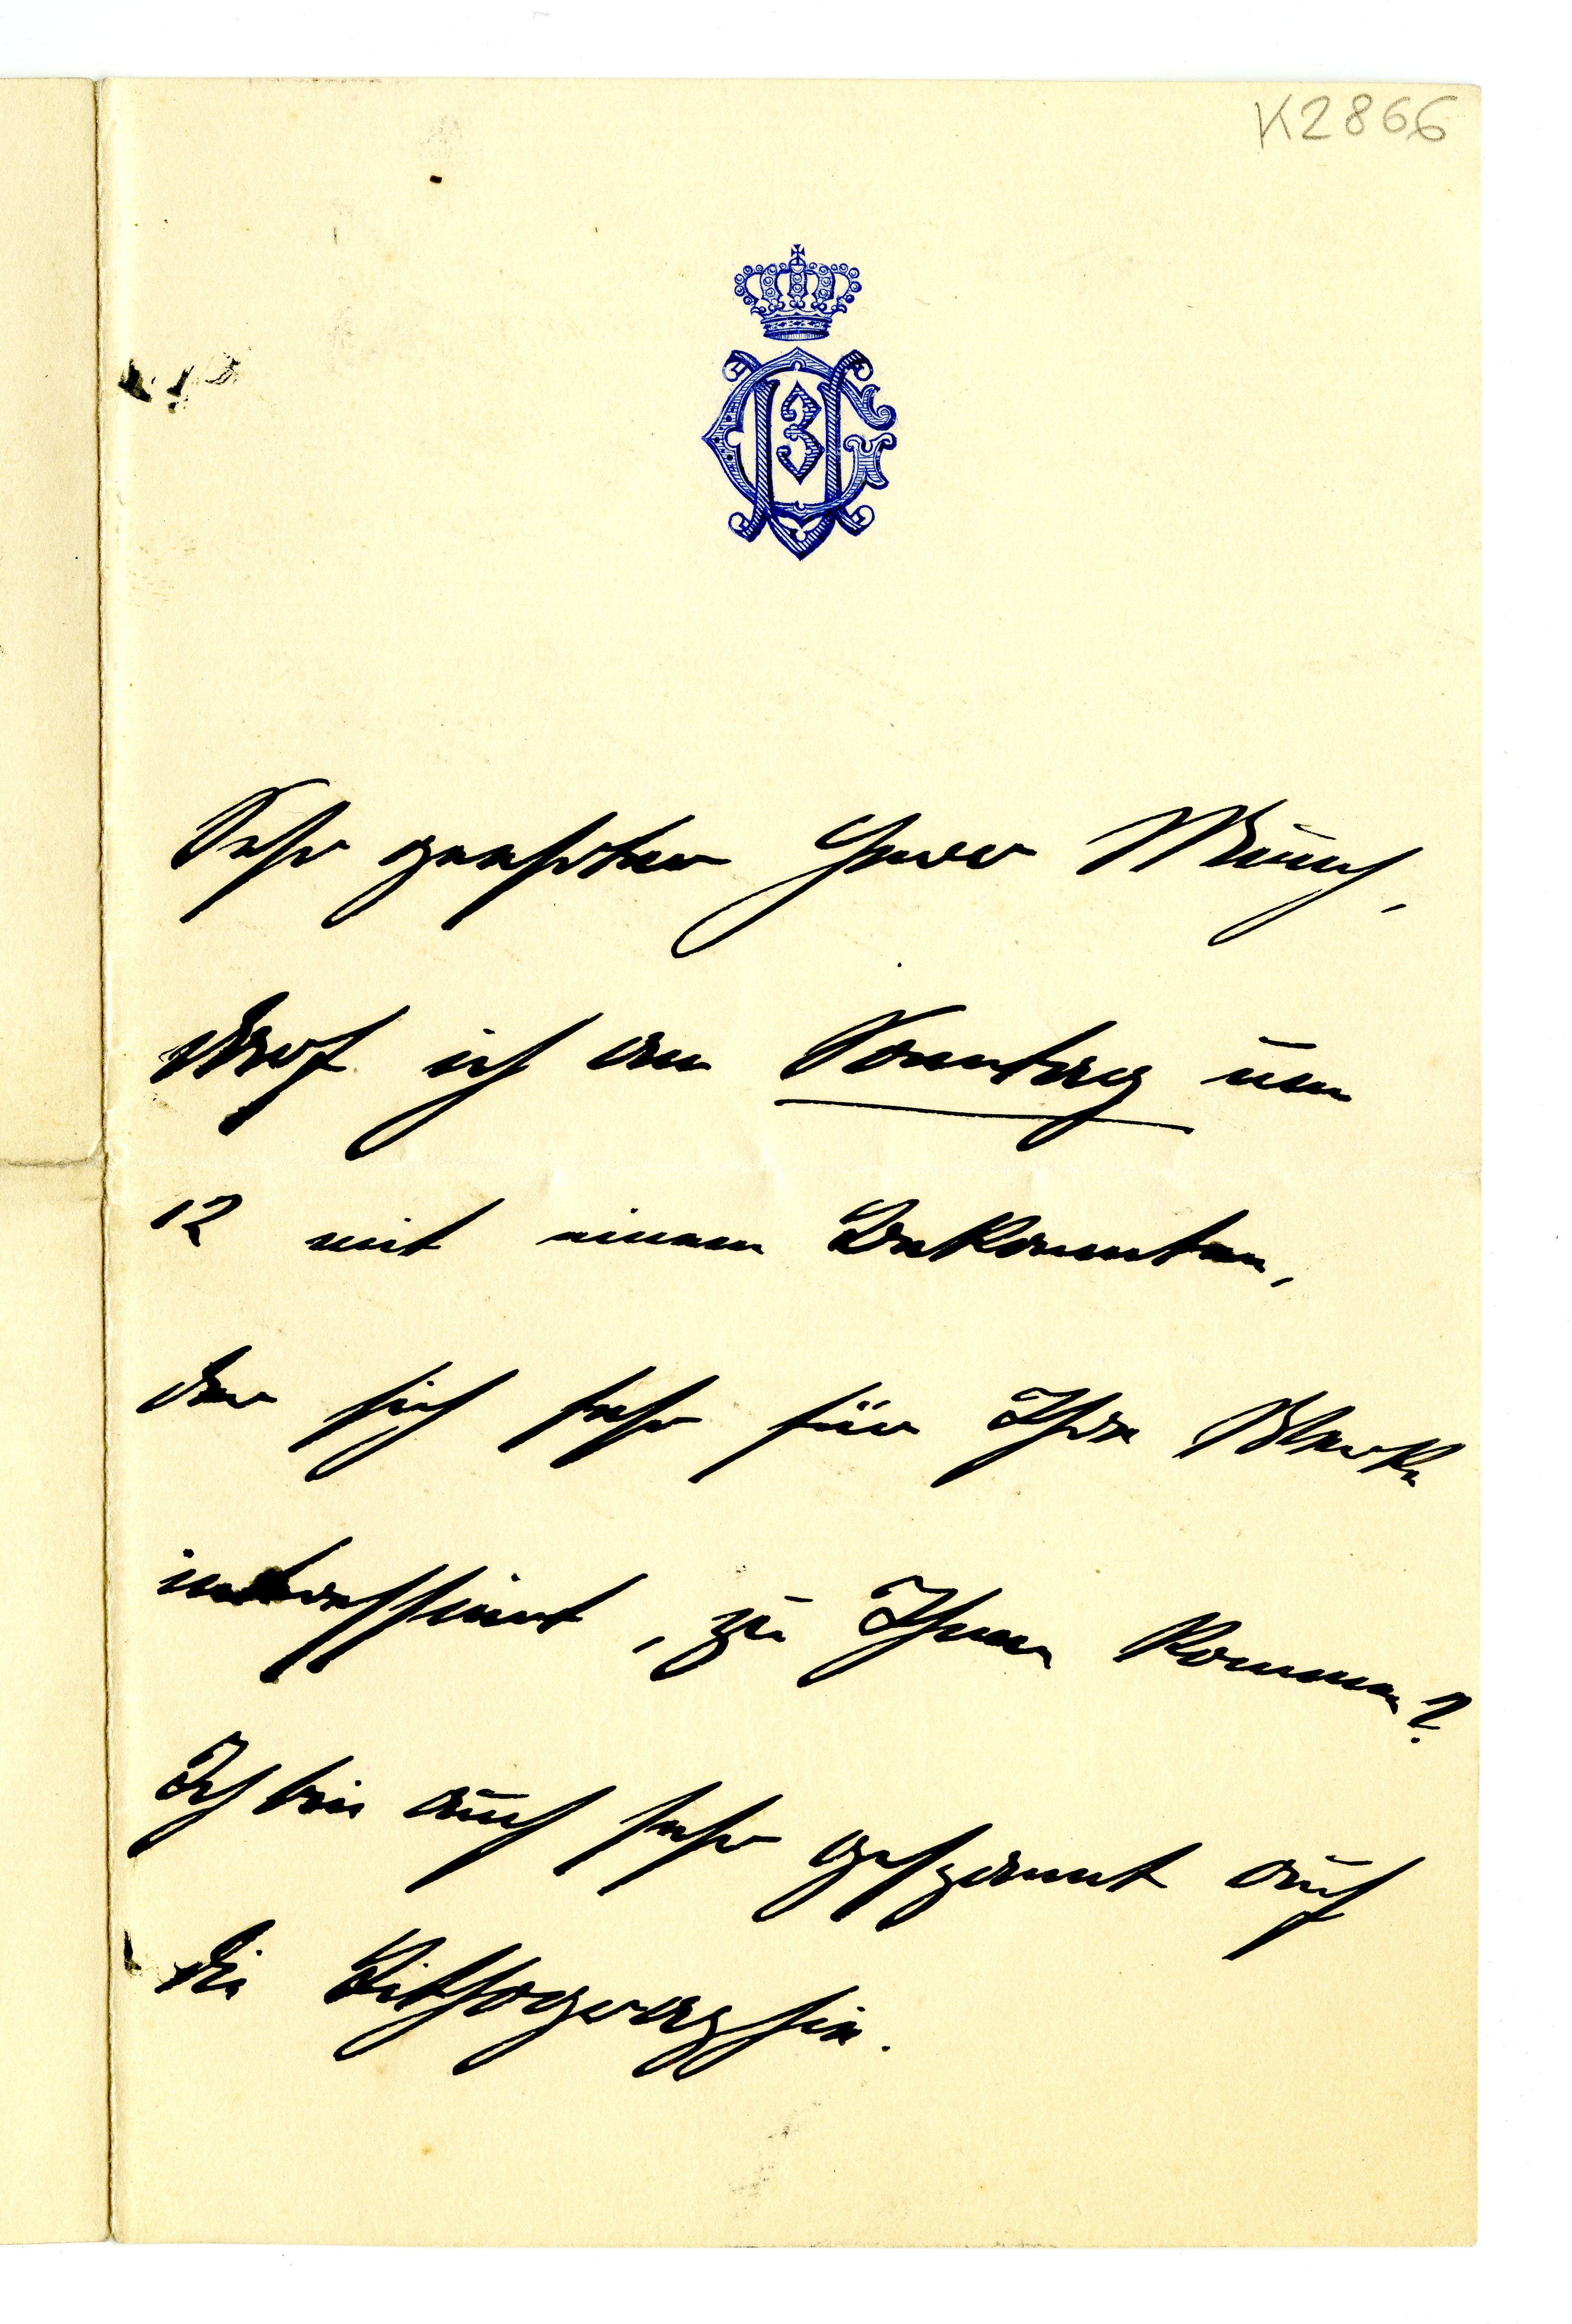 K2866
Sehr geehrter Herr Munch,
darf ich am Sonntag um
12 mit einem Bekannten,
der sich sehr für Ihre Werke
interessiert, zu Ihnen kommen?
Ich bin auch sehr gespannt auf
die Lithographie.